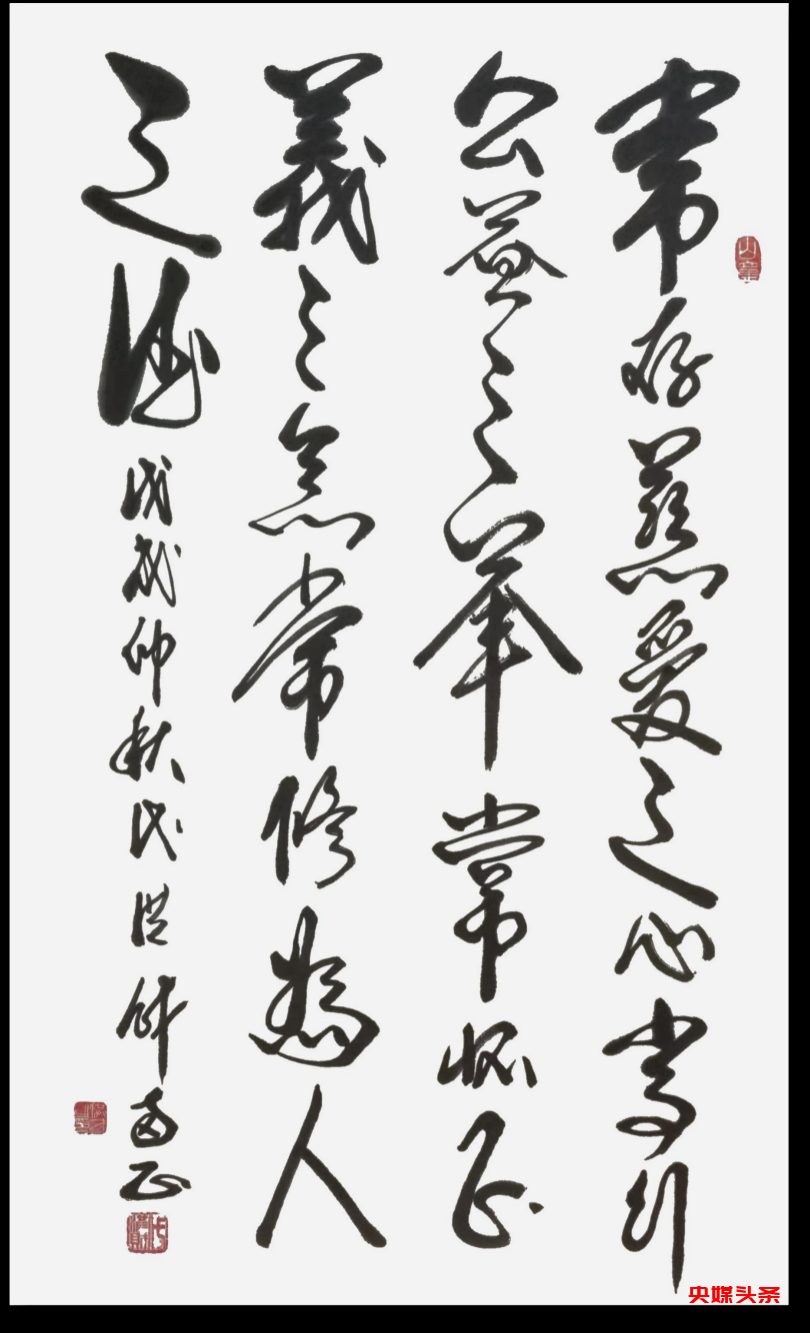 常存慈爱之心常行
公益之举常怀正
義之念常修为人
之德
戊戌仲秋代洪财书正
央媒头条